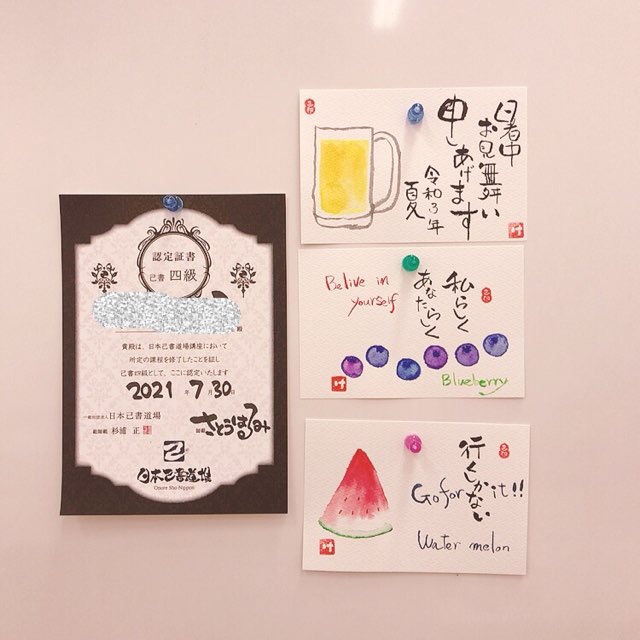 認定証書
己書 四級
殿
貴殿は、日本己書道場講座において
所定の課程を修了したことを証し
己書四級として、ここに認定いたします
2021年7月30日
一般社団法人 日本己書道場
総師範 杉浦 正
師範 さとうはるみ
日本己書道場
Onore Sho Nippon
暑中
お見舞い
申しあげます
令和3年
夏
Belive in
yourself
私らしく
あなたらしく
Blueberry
行くしかない
Go for it!!
Water melon
叶
叶
叶